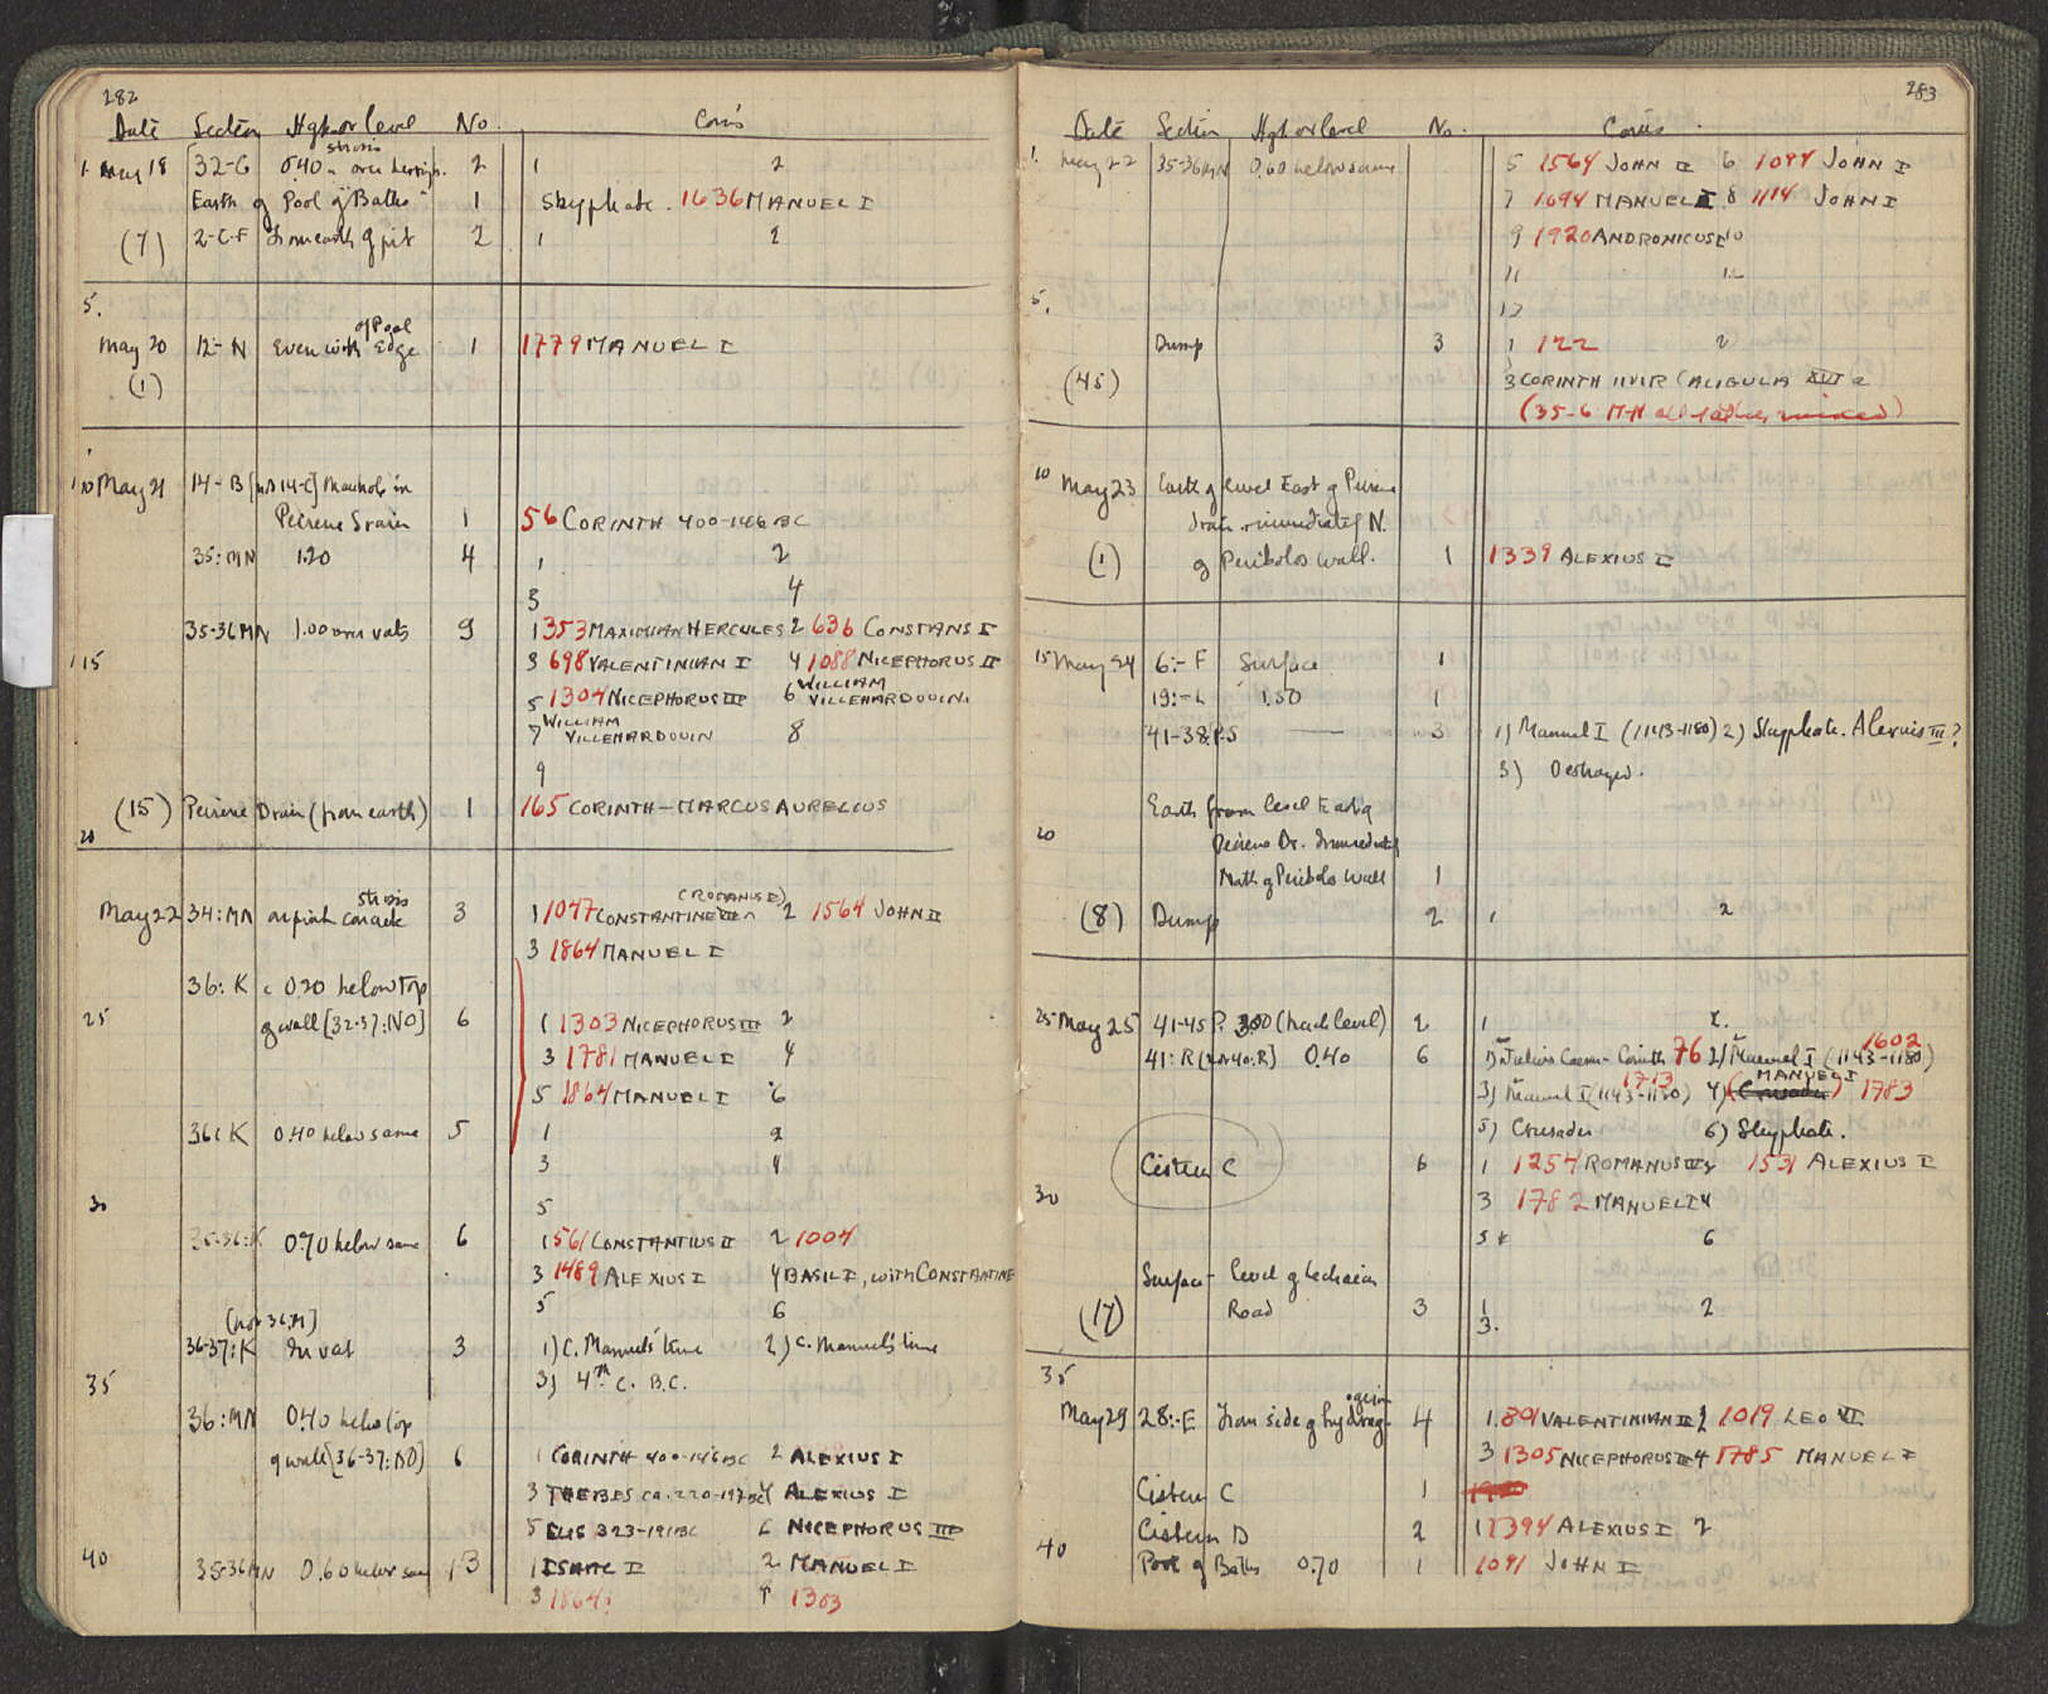 282
Date Section High or level No. Coins
1 May 18 32-G 0.40 m over herrings. 2 1 2
strosis
Earth of Pool of "Baths" 1 Skyphate. 1636 MANUEL I
(7) 2-C-F From earth of pit 2 1 2
5.
of Pool
May 20 12-N Even with Edge 1 1779 MANUEL I
(1)
10 May 21 14-B [not 14-C] Manhole in
Peirene Drain 1 56 CORINTH 400-146 BC
35:MN 1.20 4 1 2
3 4
35-36 MN 1.00 over vats 9 1 353 MAXIMIAN HERCULES 2 636 CONSTANS I
15 3 698 VALENTINIAN I 4 1088 NICEPHORUS II
5 1304 NICEPHORUS III 6 WILLIAM VILLEHARDOUIN.
7 WILLIAM VILLEHARDOUIN 8
9
(15) Peirene Drain (from earth) 1 165 CORINTH-MARCUS AURELIUS
20
strosis (ROMANUS I)
May 22 34:MN concrete 3 1 1047 CONSTANTINE VII 2 1564 JOHN II
3 1864 MANUEL I
36:K c 0.20 below top
25 of wall [32-37:NO] 6 1 1303 NICEPHORUS III 2
3 1781 MANUEL I 4
5 1864 MANUEL I 6
36:K 0.40 below same 5 1 2
3 4
30 5
35-36:K 0.70 below same 6 1 561 CONSTANTIUS II 2 1004
3 1489 ALEXIUS I 4 BASIL I, with CONSTANTINE
5 6
[not 36:M]
36-37:K In vat 3 1) C. Manuel's time 2) C. Manuel's time
35 3) 4th C. B.C.
36:MN 0.40 below top
of wall [36-37:NO] 6 1 CORINTH 400-146 BC 2 ALEXIUS I
3 THEBES ca. 220-197 BC 4 ALEXIUS I
5 ELIS 323-191 BC 6 NICEPHORUS III
40 35-36 MN 0.60 below same 13 1 ISAAC II 2 MANUEL I
3 1864 4 1303
283
Date Section High or level No. Coins.
1. May 22 35-36 MN 0.60 below same 5 1564 JOHN II 6 1094 JOHN I
7 1694 MANUEL I 8 1114 JOHN I
9 1920 ANDRONICUS I 10
11 12
5. 13
Dump 3 1 122 2
(45) 3 CORINTH IIVIR CALIGULA XVI a
(35-6 M-N all rather mixed)
10 May 23 Earth of level East of Peirene
drain immediately N.
(1) of Peribolos wall. 1 1339 ALEXIUS I
15 May 24 6:-F Surface 1
19:-L 1.50 1
41-38:P-S — 3 1) Manuel I (1143-1180) 2) Skyphate. Alexius III?
3) Destroyed.
Earth from level East of
20 Peirene Dr. Immediately
North of Peribolos Wall 1
(8) Dump 2 1 2
25 May 25 41-45 P. 3.00 (track level) 2 1 2.
41:R [not 40:R] 0.40 6 1) Julius Caesar - Corinth 76 2) Manuel I (1143-1180) 1602
3) Manuel I (1143-1180) 1713 4) (Crusader) MANUEL I 1783
5) Crusader 6) Skyphate.
Cistern C 6 1 1254 ROMANUS III 2 1531 ALEXIUS I
30 3 1782 MANUEL I 4
5 6
Surface - level of Lechaion
(17) Road 3 1 2
3.
35
May 29 28:-E From side of hydrag- 4 1. 891 VALENTINIAN II 2 1019 LEO VI
ogeion
3 1305 NICEPHORUS III 4 1785 MANUEL I
Cistern C 1
Cistern D 2 1 1394 ALEXIUS I 2
40 Pool of Baths 0.70 1 1091 JOHN I